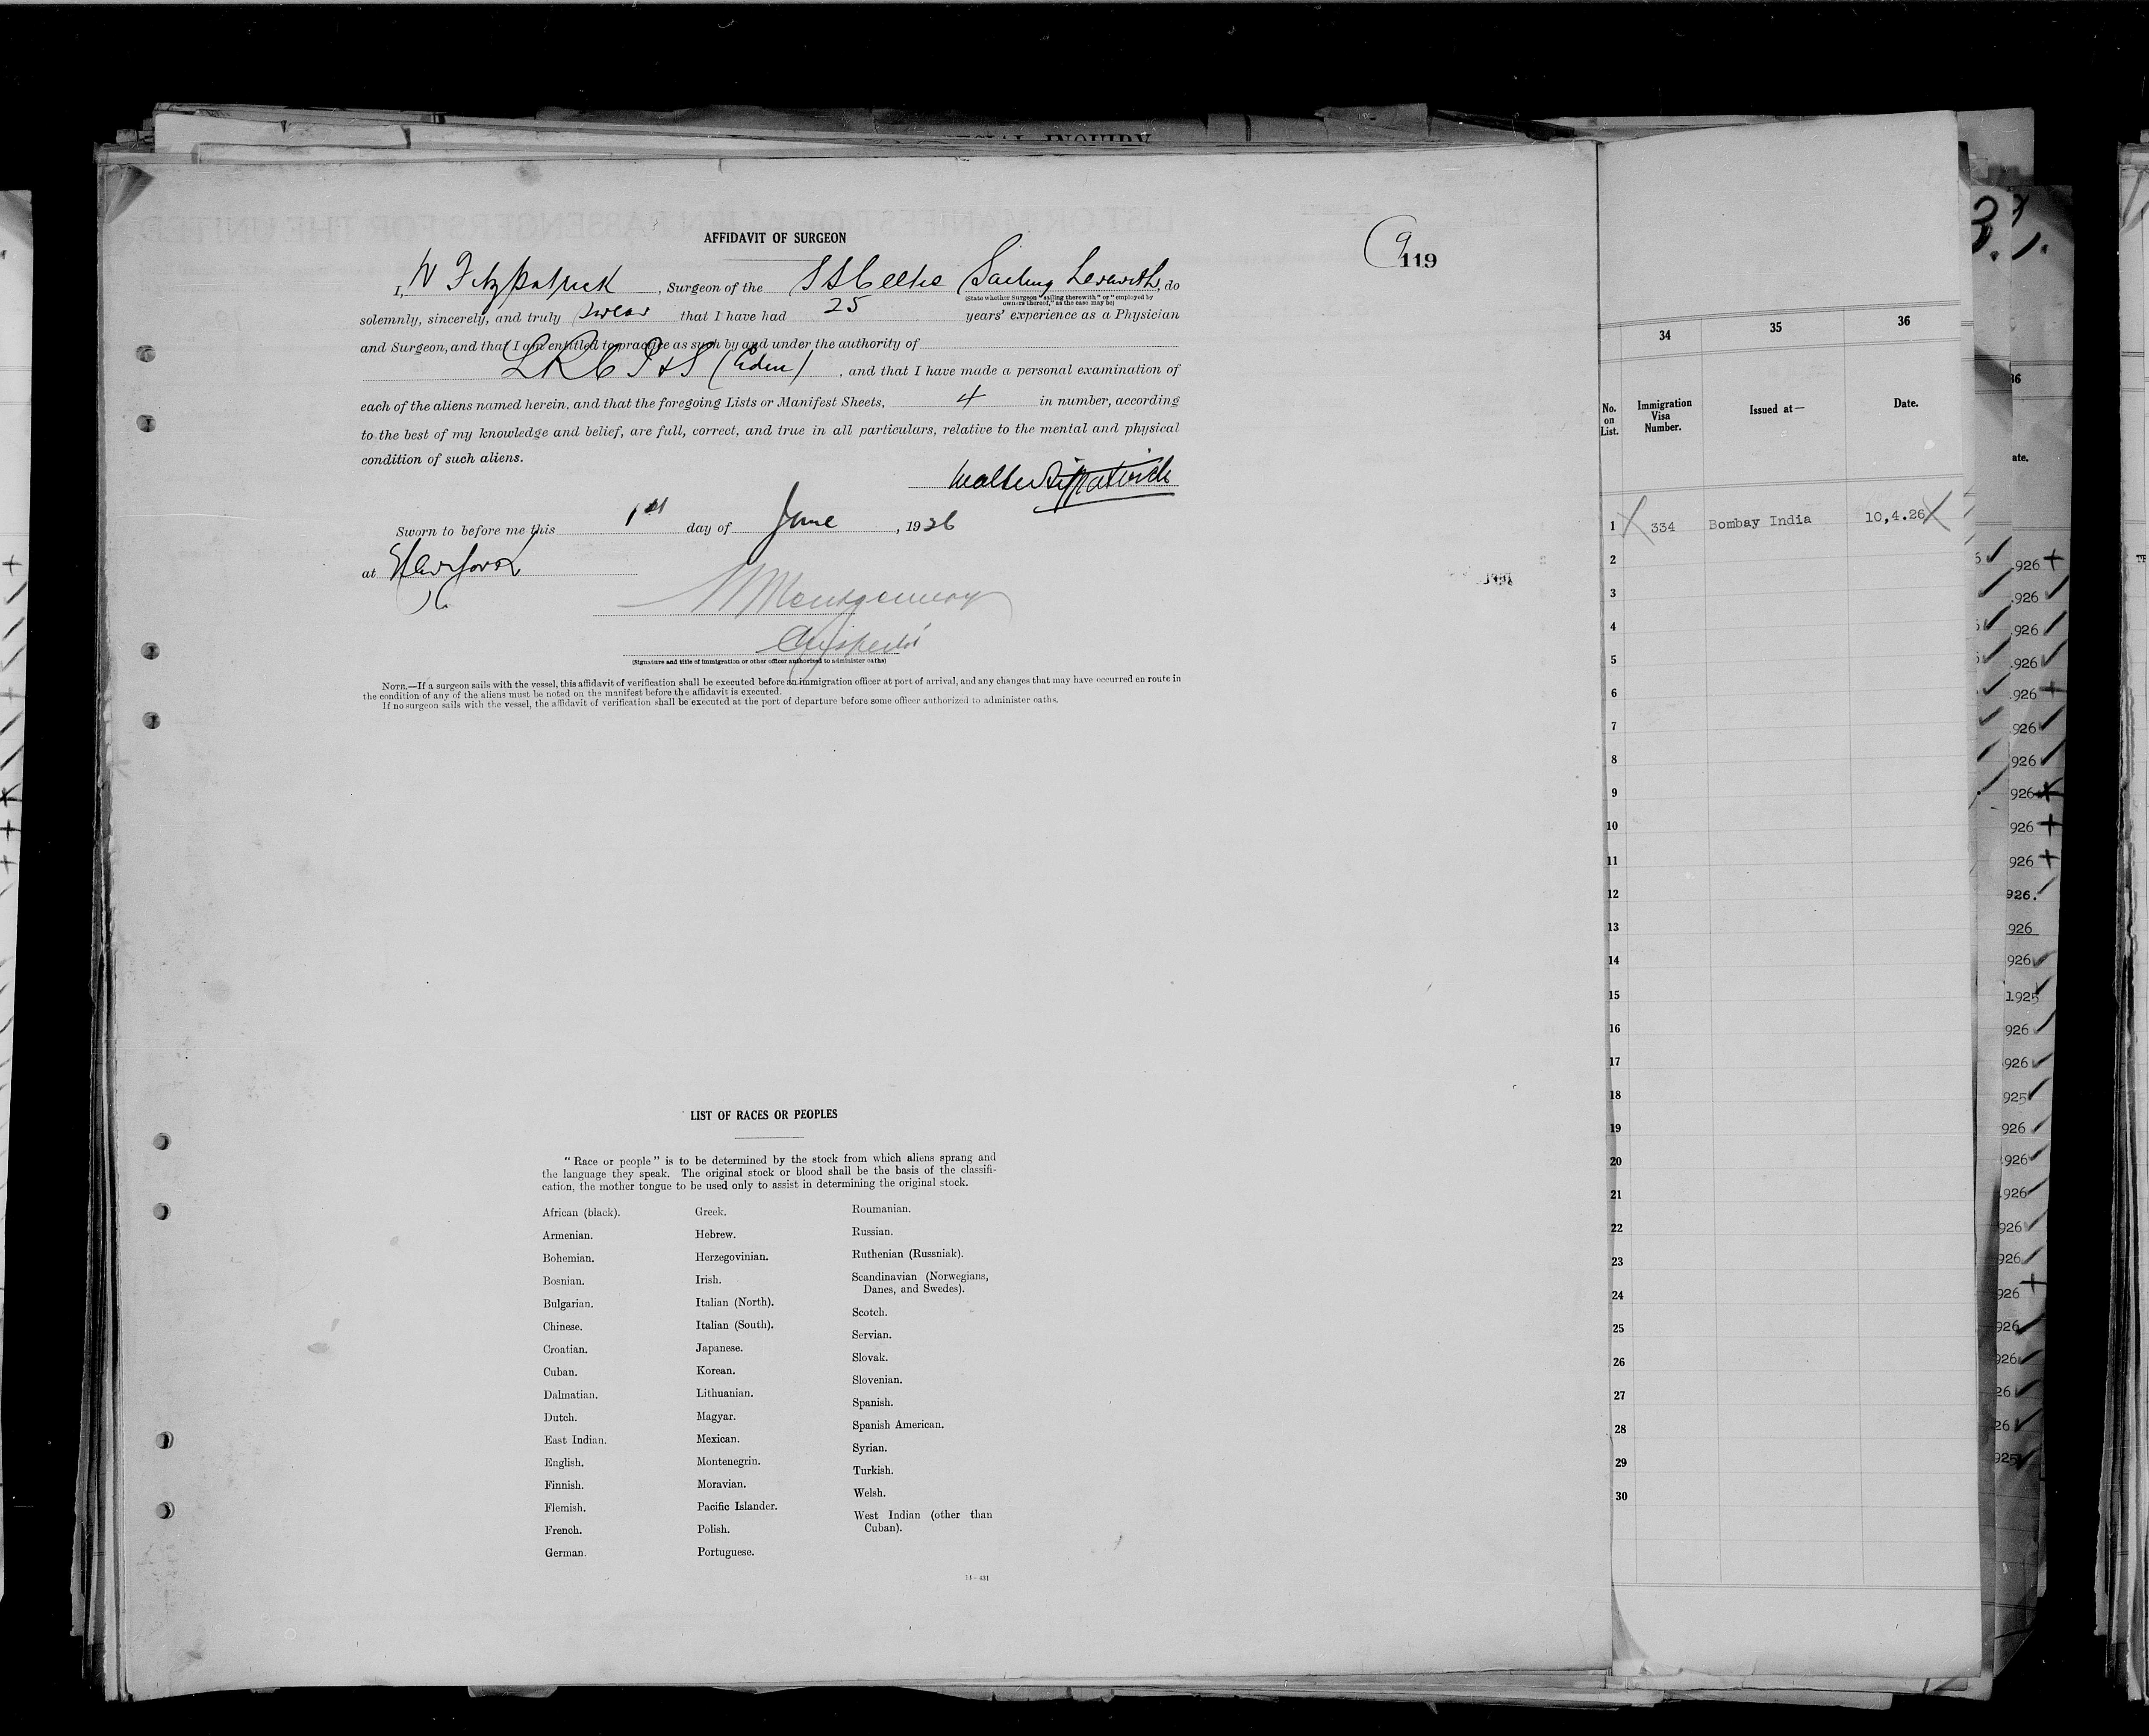 SPECIAL INQUIRY
AFFIDAVIT OF SURGEON
9
119
I, W Fitzpatrick, Surgeon of the SS Celtic Sailing therewith, do
(State whether Surgeon "sailing therewith" or "employed by
owners thereof," as the case may be)
solemnly, sincerely, and truly swear that I have had 25 years' experience as a Physician
and Surgeon, and that I am entitled to practice as such by and under the authority of
LRCP&S (Edin), and that I have made a personal examination of
each of the aliens named herein, and that the foregoing Lists or Manifest Sheets, 4 in number, according
to the best of my knowledge and belief, are full, correct, and true in all particulars, relative to the mental and physical
condition of such aliens.
Walter Fitzpatrick
Sworn to before me this 1st day of June, 1926
at New York
Montgomery
Inspector
(Signature and title of immigration or other officer authorized to administer oaths)
NOTE.—If a surgeon sails with the vessel, this affidavit of verification shall be executed before an immigration officer at port of arrival, and any changes that may have occurred en route in
the condition of any of the aliens must be noted on the manifest before the affidavit is executed.
If no surgeon sails with the vessel, the affidavit of verification shall be executed at the port of departure before some officer authorized to administer oaths.
LIST OF RACES OR PEOPLES
"Race or people" is to be determined by the stock from which aliens sprang and
the language they speak. The original stock or blood shall be the basis of the classifi-
cation, the mother tongue to be used only to assist in determining the original stock.
African (black).
Armenian.
Bohemian.
Bosnian.
Bulgarian.
Chinese.
Croatian.
Cuban.
Dalmatian.
Dutch.
East Indian.
English.
Finnish.
Flemish.
French.
German.
Greek.
Hebrew.
Herzegovinian.
Irish.
Italian (North).
Italian (South).
Japanese.
Korean.
Lithuanian.
Magyar.
Mexican.
Montenegrin.
Moravian.
Pacific Islander.
Polish.
Portuguese.
Roumanian.
Russian.
Ruthenian (Russniak).
Scandinavian (Norwegians,
Danes, and Swedes).
Scotch.
Servian.
Slovak.
Slovenian.
Spanish.
Spanish American.
Syrian.
Turkish.
Welsh.
West Indian (other than
Cuban).
14—431
34 35 36
No.
on
List.
Immigration
Visa
Number.
Issued at—
Date.
1 334 Bombay India 10,4.26
2
3
4
5
6
7
8
9
10
11
12
13
14
15
16
17
18
19
20
21
22
23
24
25
26
27
28
29
30
36
ate.
926
926
926
926
926
926
926
926
926
926
926.
926
926
1925
926
926
925
926
926
926
926
926
926
926
926
26
26
925